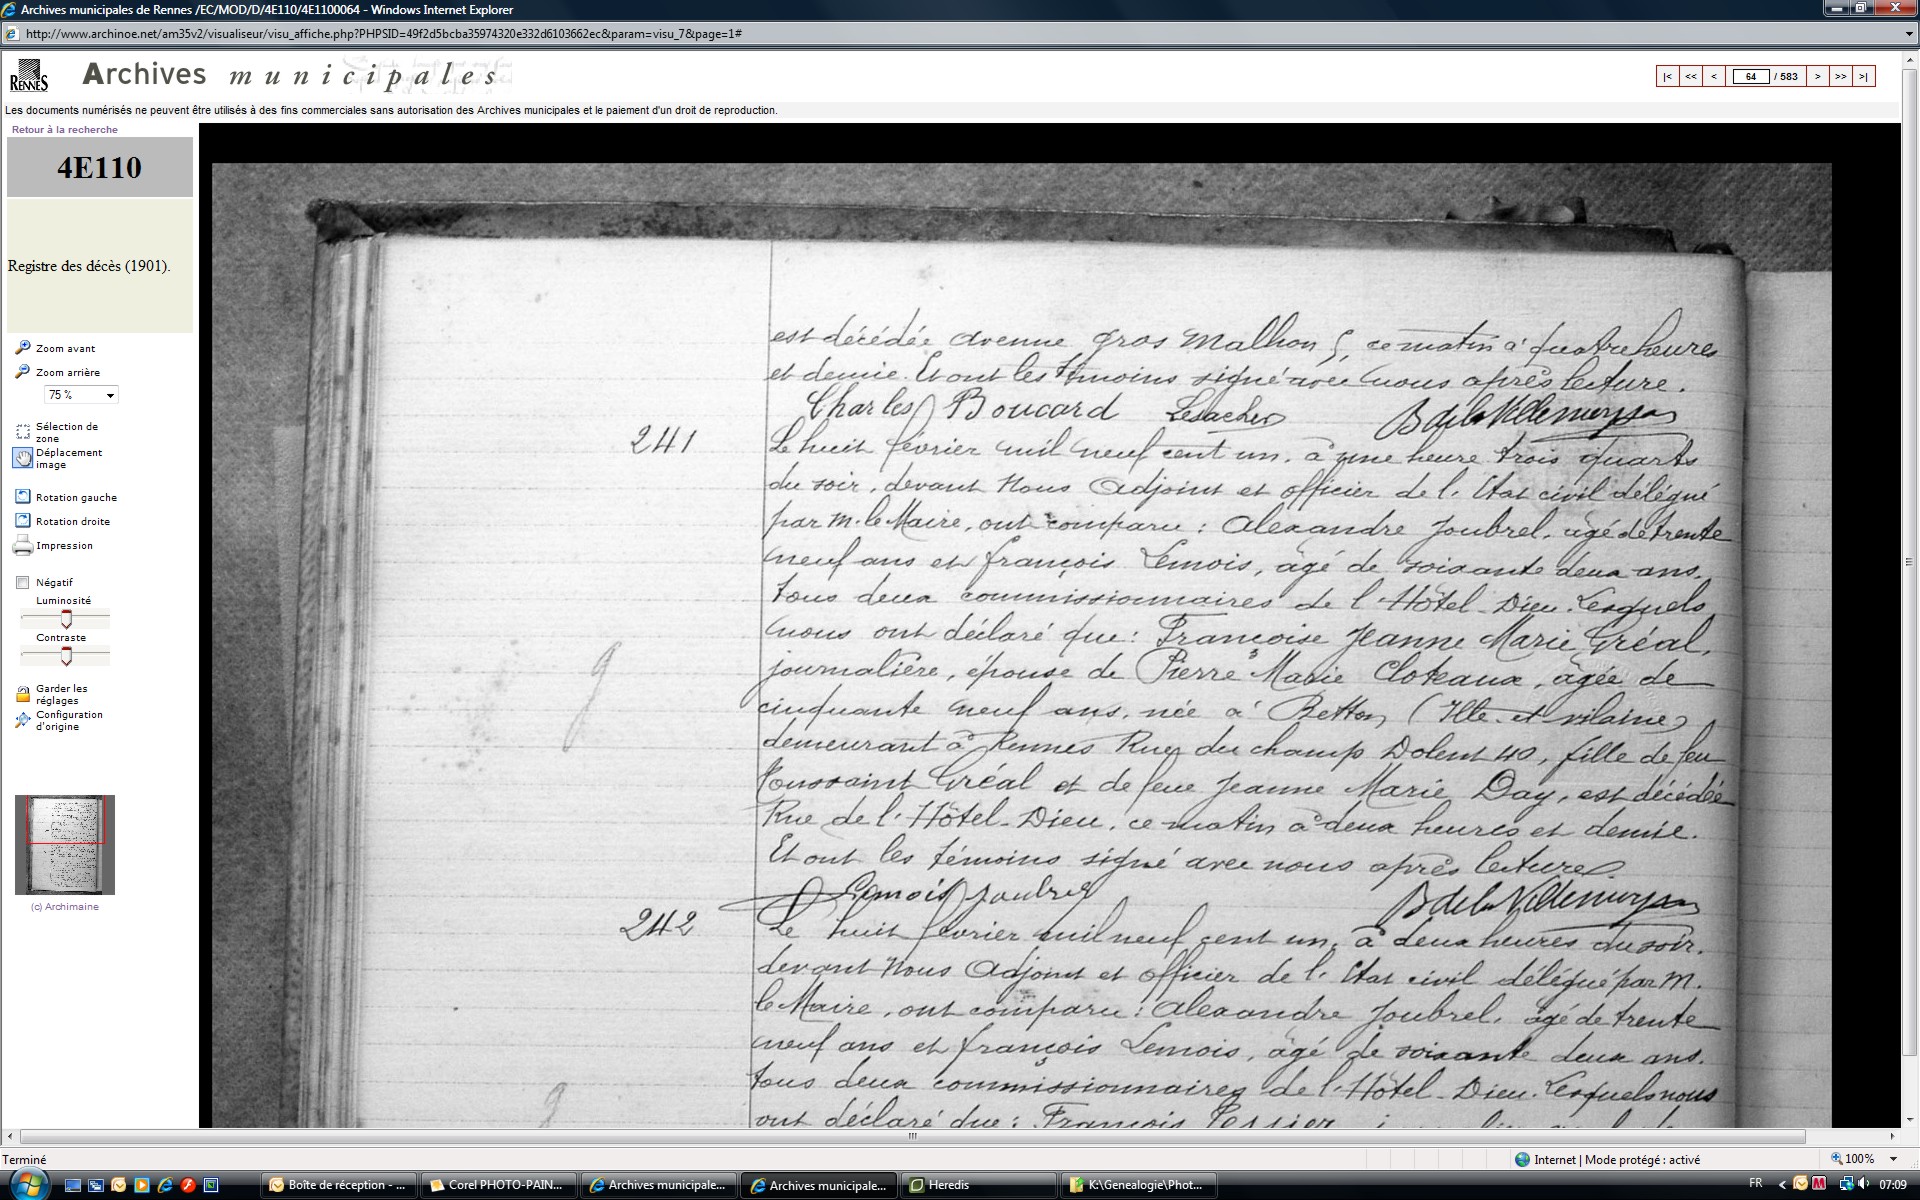 Archives municipales de Rennes /EC/MOD/D/4E110/4E1100064 - Windows Internet Explorer
http://www.archinoe.net/am35v2/visualiseur/visu_affiche.php?PHPSID=49f2d5bcba35974320e332d6103662ec&param=visu_7&page=1#
RENNES
Archives municipales
|< << < 64 / 583 > >> >|
Les documents numérisés ne peuvent être utilisés à des fins commerciales sans autorisation des Archives municipales et le paiement d'un droit de reproduction.
Retour à la recherche
4E110
Registre des décès (1901).
Zoom avant
Zoom arrière
75 %
Sélection de
zone
Déplacement
image
Rotation gauche
Rotation droite
Impression
Négatif
Luminosité
Contraste
Garder les
réglages
Configuration
d'origine
(c) Archimaine
est décédée avenue gros Malhon 5, ce matin à quatre heures
et demie. Et ont les témoins signé avec nous après lecture.
Charles Boucard Lesacher B de la Villemoysan
241
Le huit février mil neuf cent un, à une heure trois quarts
du soir, devant Nous Adjoint et officier de l'Etat civil délégué
par M. le Maire, ont comparu : Alexandre Joubrel, âgé de trente
neuf ans et François Lemois, âgé de soixante deux ans.
tous deux commissionnaires de l'Hôtel-Dieu. Lesquels
nous ont déclaré que : Françoise Jeanne Marie Gréal,
journalière, épouse de Pierre Marie Cloteaux, âgée de
cinquante neuf ans, née à Betton (Ille-et-vilaine)
demeurant à Rennes Rue du champ Dolent 40, fille de feu
Toussaint Gréal et de feue Jeanne Marie Day, est décédée
Rue de l'Hôtel-Dieu, ce matin à deux heures et demie.
Et ont les témoins signé avec nous après lecture.
Lemois Joubrel B de la Villemoysan
242
Le huit février mil neuf cent un, à deux heures du soir.
devant Nous Adjoint et officier de l'Etat civil délégué par M.
le Maire, ont comparu : Alexandre Joubrel, âgé de trente
neuf ans et François Lemois, âgé de soixante deux ans.
tous deux commissionnaires de l'Hôtel-Dieu. Lesquels nous
ont déclaré que : François Tessier
Terminé
Internet | Mode protégé : activé
100%
Boîte de réception - ...
Corel PHOTO-PAIN...
Archives municipale...
Archives municipale...
Heredis
K:\Genealogie\Phot...
FR
07:09